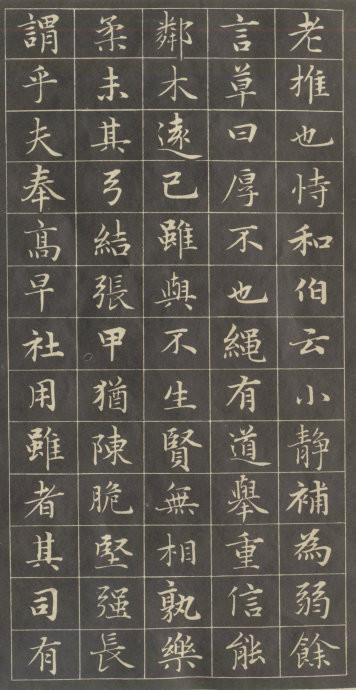 老推也恃和伯云小靜補為弱餘
言草曰厚不也繩有道舉重信能
鄰木遠己雖與不生賢無相孰樂
柔未其弓結張甲猶陳脆堅强長
謂乎夫奉高早社用雖者其司有